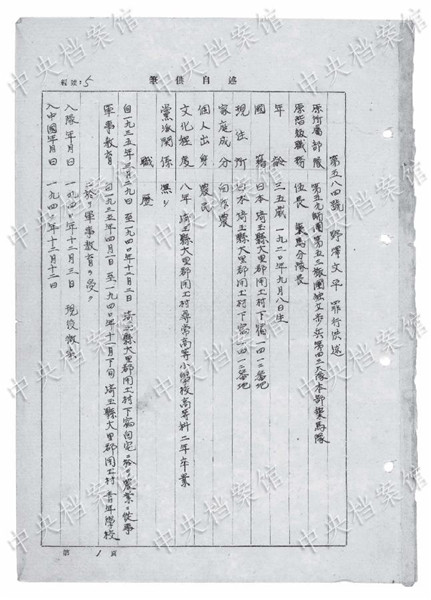 述自供筆
編號:5
第五八四號 野澤文平 罪行供述
原所屬部隊 第五九師團第五三旅團独立歩兵第四三大隊本部乗馬隊
原階級職務 伍長 乗馬分隊長
年齡 三五歳 一九二〇年九月八日生
國籍 日本埼玉縣大里郡
現住所 日本埼玉縣大里郡
家庭成分 自作農
個人出身 農民
文化程度 八年 埼玉縣大里郡 尋常高等小學校高等科二年卒業
黨派關係 無シ
職歷
自一九三五年三月 日 至一九四〇年十月 日 埼玉縣大里郡 自宅ニ於テ農業ニ従事
軍事教育 自一九三五年四月一日至一九四〇年十一月下旬埼玉縣大里郡 青年學校
ニ於テ軍事教育ヲ受ク
入隊年月日 一九四〇年十二月三日 現役徴集
入中國年月日 一九四〇年十二月十二日
第 1 頁
中央档案馆